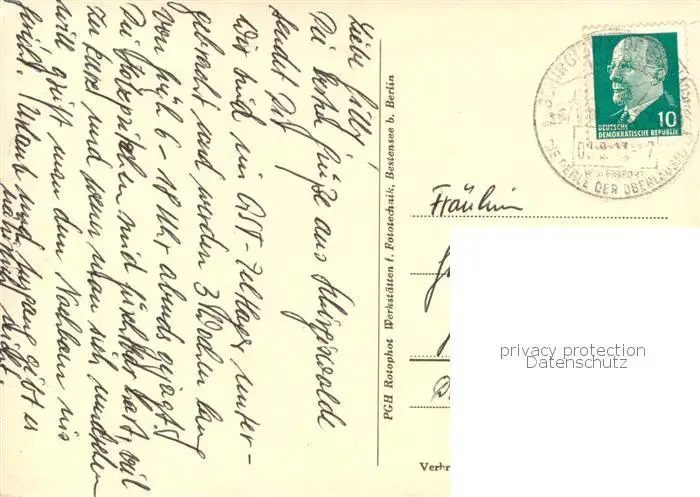 Liebe Lilly!
Die besten Grüße aus
sendet Dir
Wir sind im GST-Zeltlager unter-
gebracht und werden 3 Wochen lang
von früh 6 - 18 Uhr abends gejagt.
Die sind furchtbar hart, viel
zu kurz und wenn man sich umdrehen
will greift man dem Nachbarn ins
Urlaub und Ausgang gibt es
natürlich nicht.
PGH Rotophot Werkstätten f. Fototechnik, Bestensee b. Berlin
10
DEUTSCHE
DEMOKRATISCHE REPUBLIK
DIE PERLE DER OBERLAUSITZ
Fräulein
privacy protection
Datenschutz
Verbr